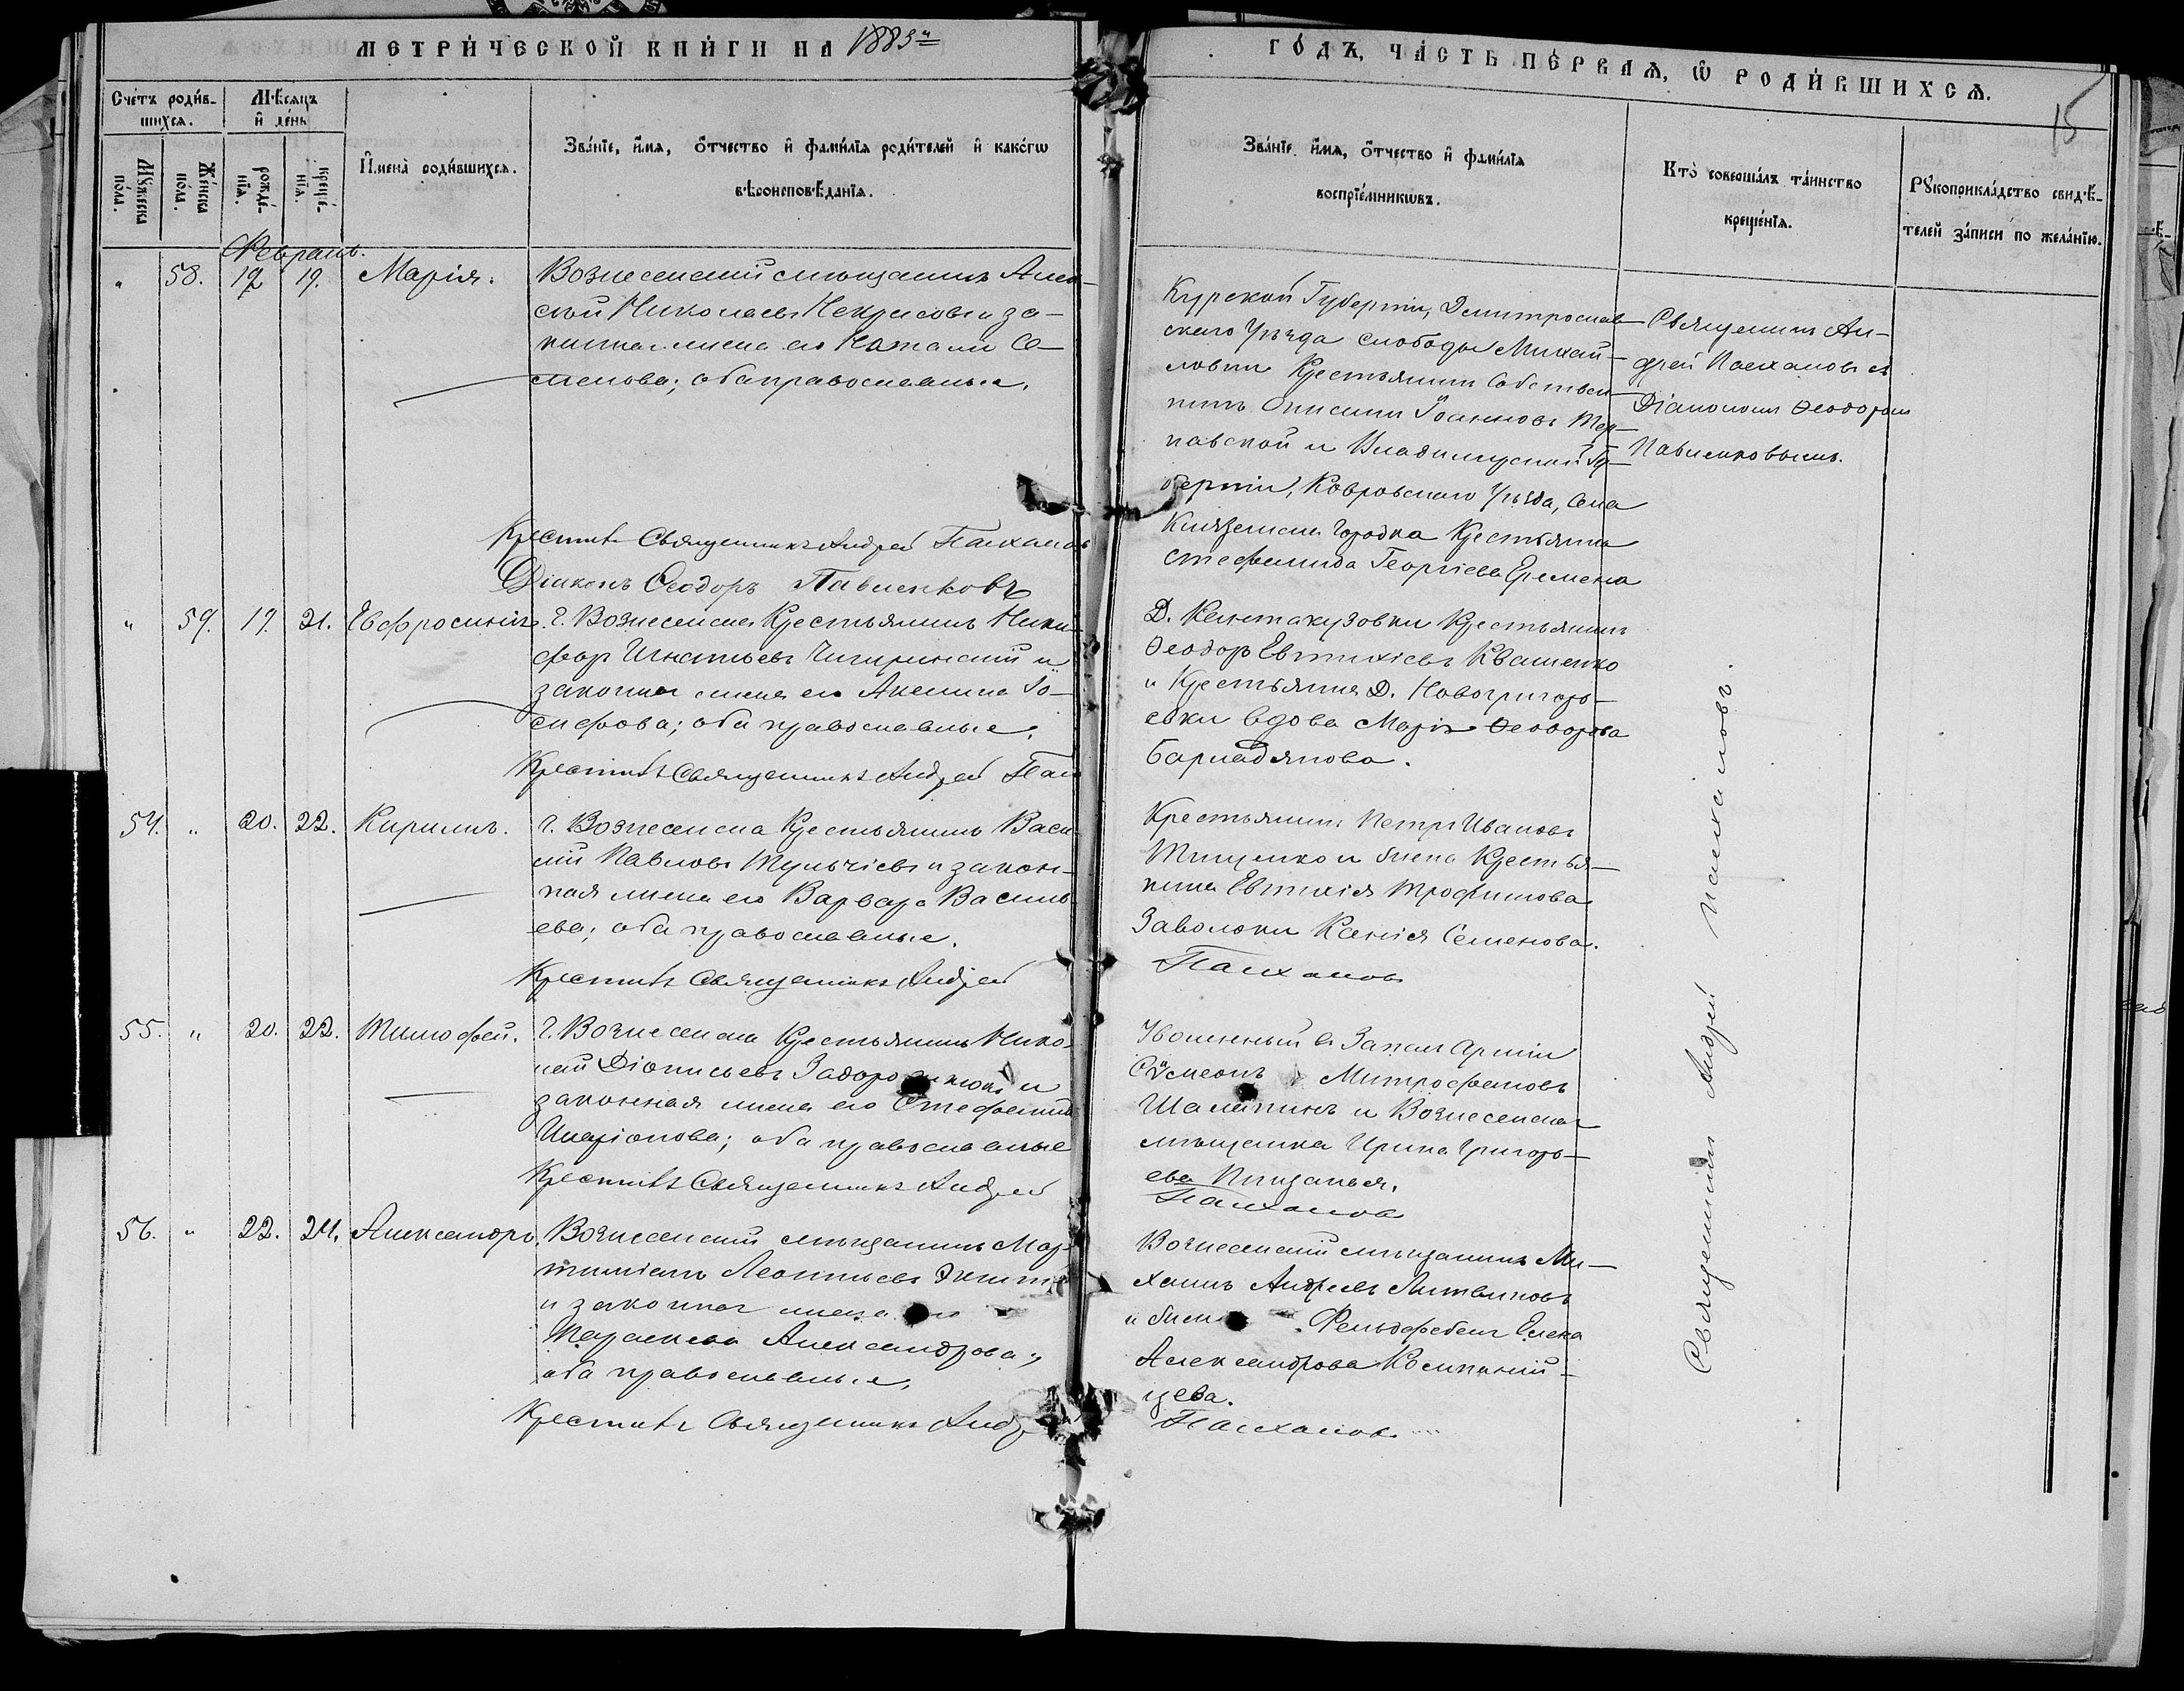 МЕТРИ́ЧЕСКОЙ КНИ́ГИ НА 1883й
ГО́ДЪ, ЧА́СТЬ ПЕ́РВАѦ, Ѡ҆ РОДИ́ВШИХСѦ.
15
Сче́тъ роди́в-
шихсѧ.
Мѣ́сѧцъ
и҆ де́нь
Му́жеска
по́ла.
Же́нска
по́ла.
рожде́-
нїѧ.
креще́-
нїѧ.
И҆мена̀ роди́вшихсѧ.
Зва́нїе, и҆́мѧ, ѻ҆́тчество и҆ фами́лїѧ роди́телей и҆ како́гѡ
вѣроисповѣ́данїѧ.
Зва́нїе, и҆́мѧ, ѻ҆́тчество и҆ фами́лїѧ
воспрїе́мникѡвъ.
Кто̀ соверша́лъ та́инство
креще́нїѧ.
Рꙋкоприкла́дство свидѣ́-
телей за́писи по жела́нїю.
Февраль.
" 58. 12 19. Марія.
Вознесенскій мѣщанинъ Алек-
сѣй Николаевъ Некрасовъ и за-
конная жена его Наталія Се-
менова; оба православные.
Крестилъ Священникъ Андрей Палхаловъ
Діаконъ Ѳеодоръ Павленковъ
Курской Губерніи, Дмитріевс-
скаго Уѣзда слободы Михай-
ловки Крестьянинъ Собствен-
никъ Онисимъ Іоанновъ
и Владимірской Гу-
берніи, Ковровскаго Уѣзда, Села
Городка Крестьянка
Стефанида Георгіева
Священникъ Ан-
дрей Палхаловъ съ
Діакономъ Ѳеодоромъ
Павленковымъ.
" 59. 19. 21. Евфросинія.
г. Вознесенска Крестьянинъ Ники-
форъ Игнатьевъ Чигиринскій и
законная жена его Акилина Іо-
сифова; оба православные.
Крестилъ Священникъ Андрей Пал
Д. Кантакузовки Крестьянинъ
Ѳеодоръ Евтихіевъ Квашенко
и Крестьянка Д. Новогригорь-
евки вдова Марія Ѳеодорова
Барладянова.
54. " 20. 22. Кириллъ.
г. Вознесенска Крестьянинъ Васи-
лій Павловъ Тульчіевъ и закон-
ная жена его Варвара Василь-
ева; оба православные.
Крестилъ Священникъ Андрей
Крестьянинъ Петръ Ивановъ
Тищенко и жена Крестья-
нина Евтихія Трофимова
Заволоки Ксенія Семенова.
Палхаловъ
55. " 20. 22. Тимофей.
г. Вознесенска Крестьянинъ Нико-
лай Діонисьевъ и
законная жена его Стефанида
Иларіонова; оба православные
Крестилъ Священникъ Андрей
Уволенный въ Запасъ Арміи
Сѵмеонъ Митрофановъ
Шаляпинъ и Вознесенская
мѣщанка Ирина Григорь-
ева
Палхаловъ
56. " 22. 24. Александръ.
Вознесенскій мѣщанинъ Мар-
тиніанъ Леонтьевъ
и законная жена его
Параскева Александрова;
оба православные.
Крестилъ Священникъ Андр
Вознесенскій мѣщанинъ Ми-
хаилъ Андреевъ Литвиновъ
и жена Фельдфебеля Елена
Александрова Компаній-
цева.
Палхаловъ
Священникъ Андрей Палхаловъ.